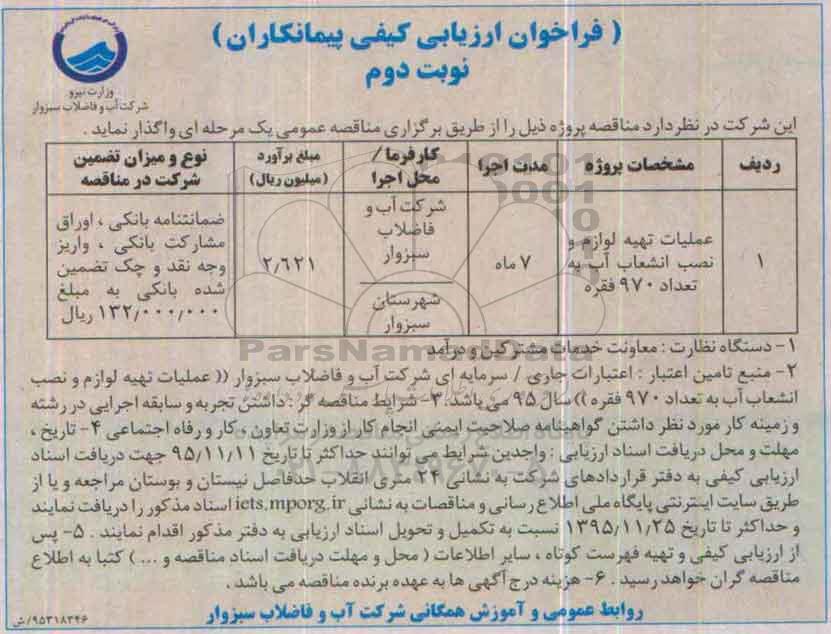 ( فراخوان ارزیابی کیفی پیمانکاران )
نوبت دوم
وزارت نیرو
شرکت آب و فاضلاب سبزوار
این شرکت در نظر دارد مناقصه پروژه ذیل را از طریق برگزاری مناقصه عمومی یک مرحله ای واگذار نماید .
ردیف
مشخصات پروژه
مدت اجرا
کارفرما / محل اجرا
مبلغ برآورد (میلیون ریال)
نوع و میزان تضمین شرکت در مناقصه
۱
عملیات تهیه لوازم و
نصب انشعاب آب به
تعداد ۹۷۰ فقره
۷ ماه
شرکت آب و
فاضلاب
سبزوار
شهرستان
سبزوار
۲٫۶۲۱
ضمانتنامه بانکی ، اوراق
مشارکت بانکی ، واریز
وجه نقد و چک تضمین
شده بانکی به مبلغ
۱۳۲٫۰۰۰٫۰۰۰ ریال
ParsNamadData
۱- دستگاه نظارت : معاونت خدمات مشترکین و درآمد
۲- منبع تامین اعتبار : اعتبارات جاری / سرمایه ای شرکت آب و فاضلاب سبزوار (( عملیات تهیه لوازم و نصب
انشعاب آب به تعداد ۹۷۰ فقره )) سال ۹۵ می باشد. ۳- شرایط مناقصه گر : داشتن تجربه و سابقه اجرایی در رشته
و زمینه کار مورد نظر داشتن گواهینامه صلاحیت ایمنی انجام کار از وزارت تعاون ، کار و رفاه اجتماعی ۴- تاریخ ،
مهلت و محل دریافت اسناد ارزیابی : واجدین شرایط می توانند حداکثر تا تاریخ ۹۵٫۱۱٫۱۱ جهت دریافت اسناد
ارزیابی کیفی به دفتر قراردادهای شرکت به نشانی ۲۴ متری انقلاب حدفاصل نیستان و بوستان مراجعه و یا از
طریق سایت اینترنتی پایگاه ملی اطلاع رسانی و مناقصات به نشانی iets.mporg.ir اسناد مذکور را دریافت نمایند
و حداکثر تا تاریخ ۱۳۹۵٫۱۱٫۲۵ نسبت به تکمیل و تحویل اسناد ارزیابی به دفتر مذکور اقدام نمایند . ۵- پس
از ارزیابی کیفی و تهیه فهرست کوتاه ، سایر اطلاعات ( محل و مهلت دریافت اسناد مناقصه و ... ) کتبا به اطلاع
مناقصه گران خواهد رسید . ۶- هزینه درج آگهی ها به عهده برنده مناقصه می باشد .
روابط عمومی و آموزش همگانی شرکت آب و فاضلاب سبزوار
۹۵۳۱۸۳۴۶/ش